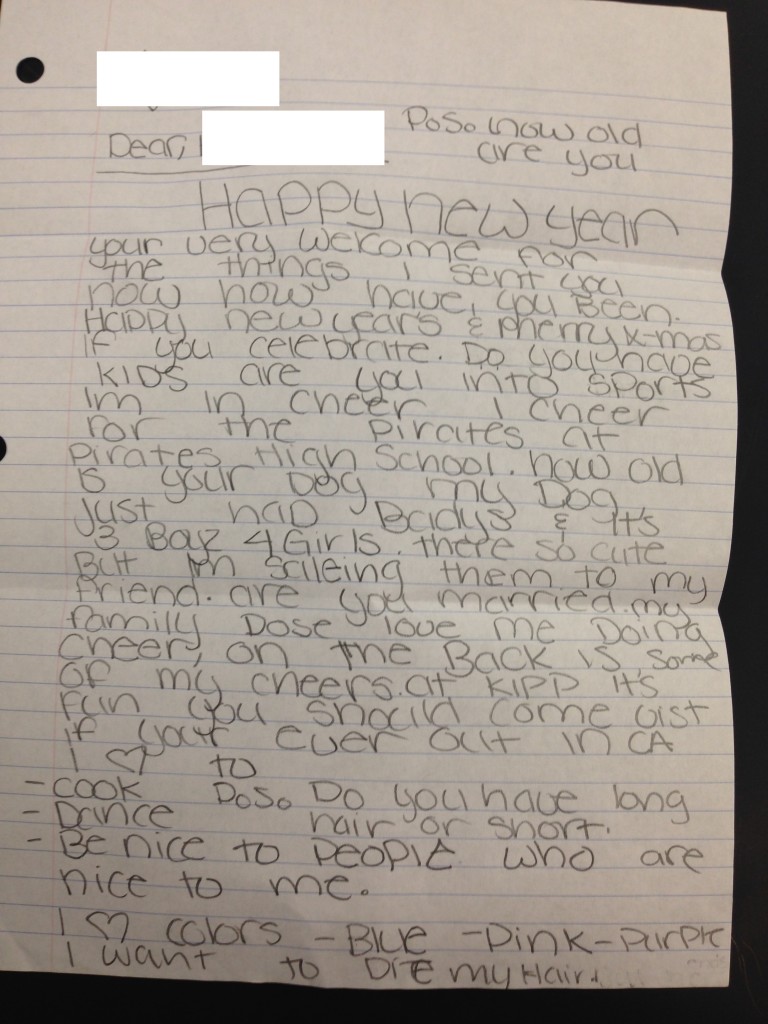 Dear,
PoSo how old
are you
Happy new year
your very welcome for
the things I sent you
now how have, you Been.
Happy new years & pherry x-mas
if you celebrate. Do you have
KIDS are you into sports
Im in cheer I cheer
for the pirates at
pirates High School. how old
is your Dog my Dog
Just had Babys & It's
3 Boyz 4 Girls. there so cute
But Im salleing them to my
friend. are you married. my
family Dose love me Doing
cheer, on the Back is some
of my cheers. at KIPP It's
fun you should come vist
if your ever out in CA
I ♡ to
- cook PoSo Do you have long
- Dance hair or short.
- Be nice to people who are
nice to me.
I ♡ colors - Blue - Pink - Purple
I want to DIE my Hair.